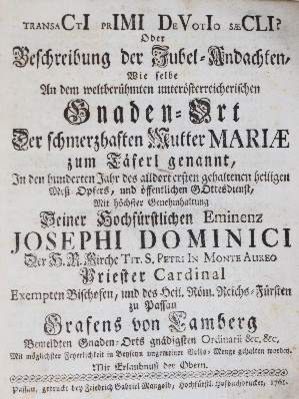 TRANSACTI PRIMI DEVOTIO SÆCLI?
Oder
Beschreibung der Jubel-Andachten,
Wie selbe
An dem weltberühmten unterösterreicherischen
Gnaden-Ort
Der schmerzhaften Mutter MARIÆ
zum Täferl genannt,
In den hunderten Jahr des alldort ersten gehaltenen heiligen
Meß-Opfers, und öffentlichen GOttesdienst,
Mit höchster Genehmhaltung
Seiner Hochfürstlichen Eminenz
JOSEPHI DOMINICI
Der H. R. Kirche TIT. S. PETRI IN MONTE AUREO
Priester Cardinal
Exempten Bischofen, und des Heil. Röm. Reichs-Fürsten
zu Passau
Grafens von Lamberg
Gnaden-Orts gnädigsten Ordinarii &c. &c.
Mit möglichster Feyerlichkeit in Beyseyn ungemeiner Volks-Menge gehalten worden.
Mit Erlaubnuß der Obern.
Passau, gedruckt bey Friedrich Gabriel Mangold, Hochfürstl. Hofbuchdrucker, 1761.